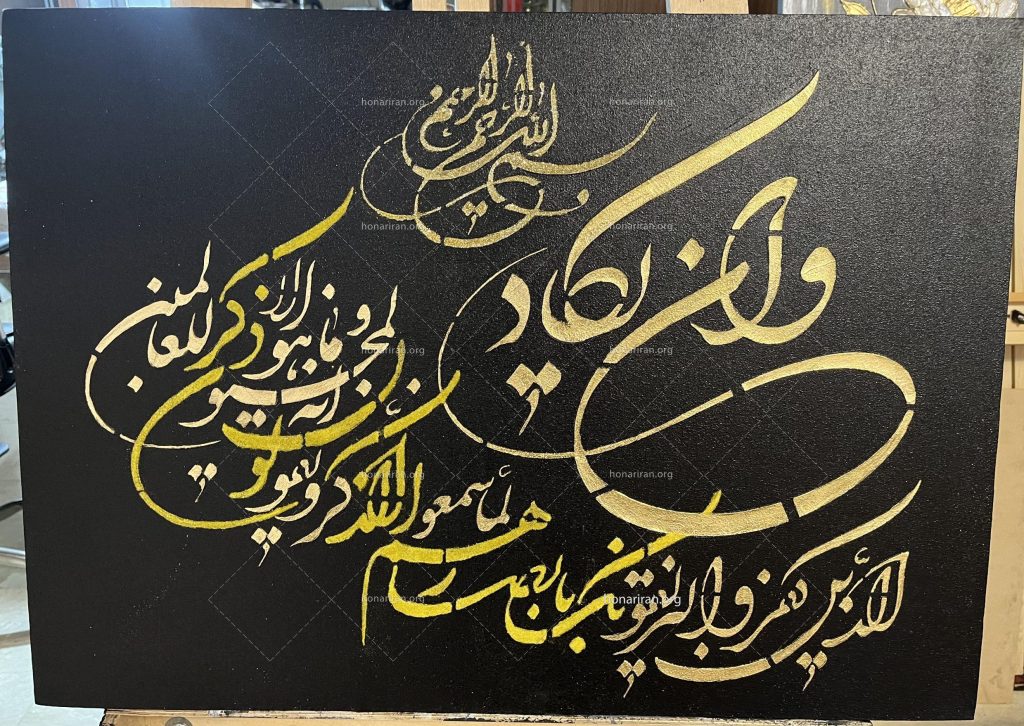 بسم الله الرحمن الرحیم
وان یکاد
الذین کفروا لیزلقونک بابصارهم
لما سمعوا الذکر ویقولون
انه لمجنون
وما هو الا ذکر للعالمین
honariran.org